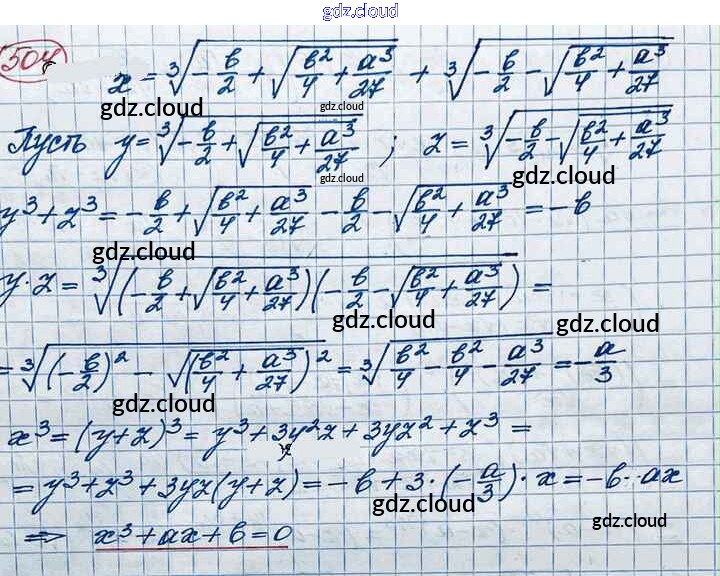 gdz.cloud
504 x = ∛(-b/2 + √(b²/4 + a³/27)) + ∛(-b/2 - √(b²/4 + a³/27))
gdz.cloud gdz.cloud
Пусть y = ∛(-b/2 + √(b²/4 + a³/27)) ; z = ∛(-b/2 - √(b²/4 + a³/27))
gdz.cloud gdz.cloud
y³ + z³ = -b/2 + √(b²/4 + a³/27) - b/2 - √(b²/4 + a³/27) = -b
gdz.cloud
y·z = ∛((-b/2 + √(b²/4 + a³/27))(-b/2 - √(b²/4 + a³/27))) =
gdz.cloud gdz.cloud
= ∛((-b/2)² - √(b²/4 + a³/27)²) = ∛(b²/4 - b²/4 - a³/27) = -a/3
gdz.cloud
x³ = (y+z)³ = y³ + 3y²z + 3yz² + z³ =
= y³ + z³ + 3yz(y+z) = -b + 3·(-a/3)·x = -b - ax
gdz.cloud gdz.cloud
⇒ x³ + ax + b = 0
gdz.cloud